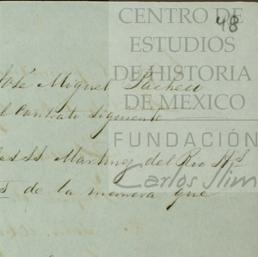 48
CENTRO DE
ESTUDIOS
DE HISTORIA
DE MEXICO
FUNDACIÓN
Carlos Slim
José Miguel Pacheco
el Contrato siguiente
los SS. Martinez del Rio Hs
de la manera que